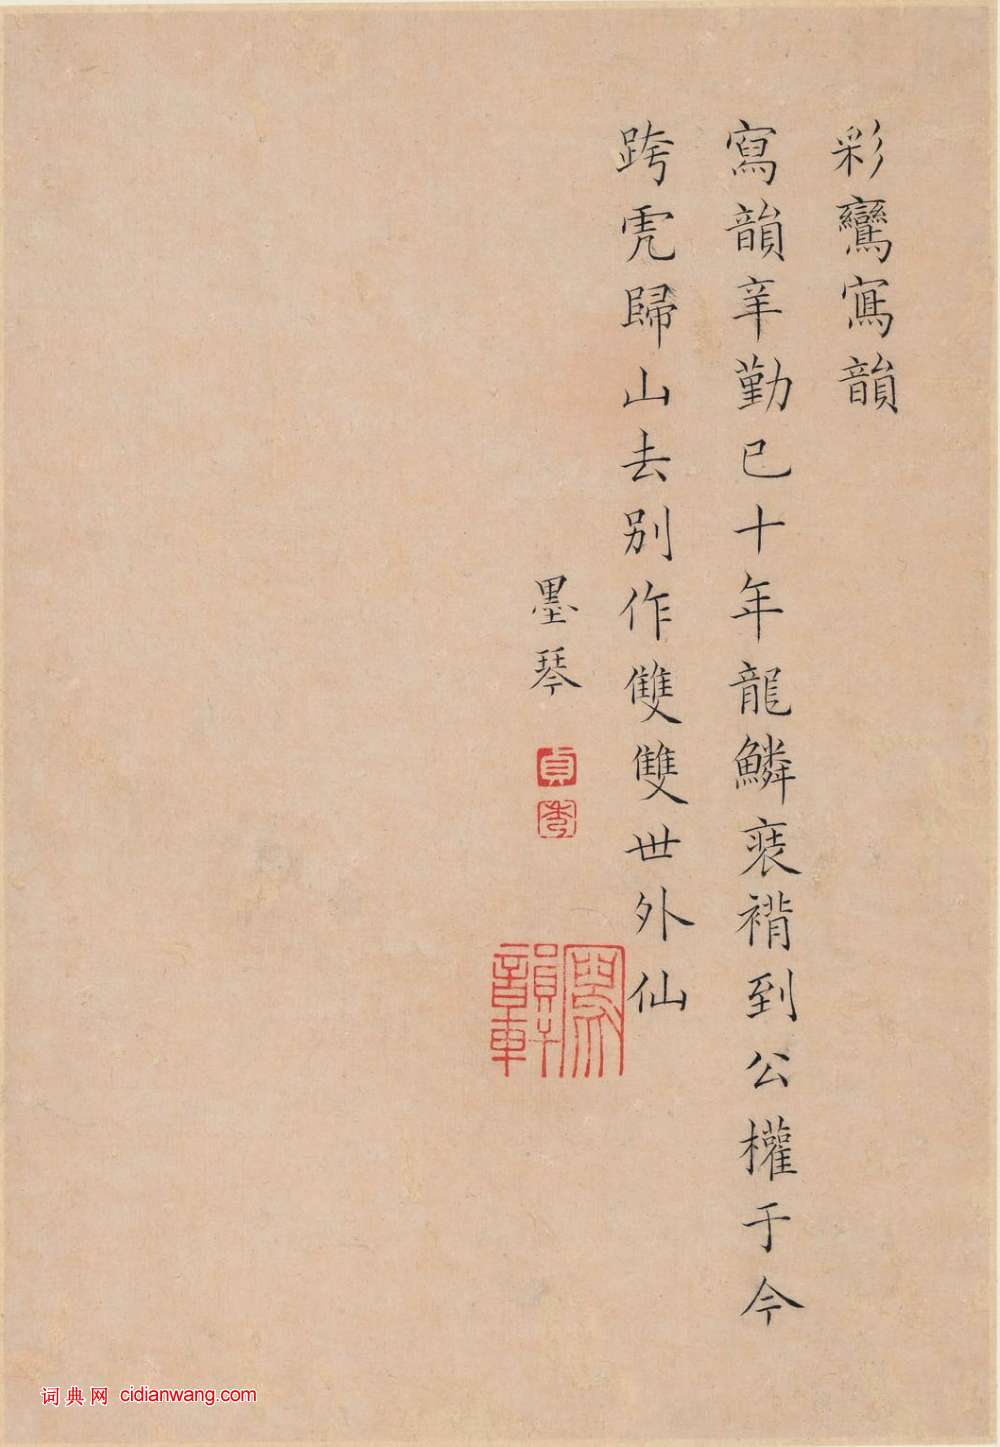 彩鸞寫韻
寫韻辛勤已十年龍鱗裝褙到公權于今
跨虎歸山去別作雙雙世外仙
墨琴
貞
秀
寫韻軒
词典网 cidianwang.com